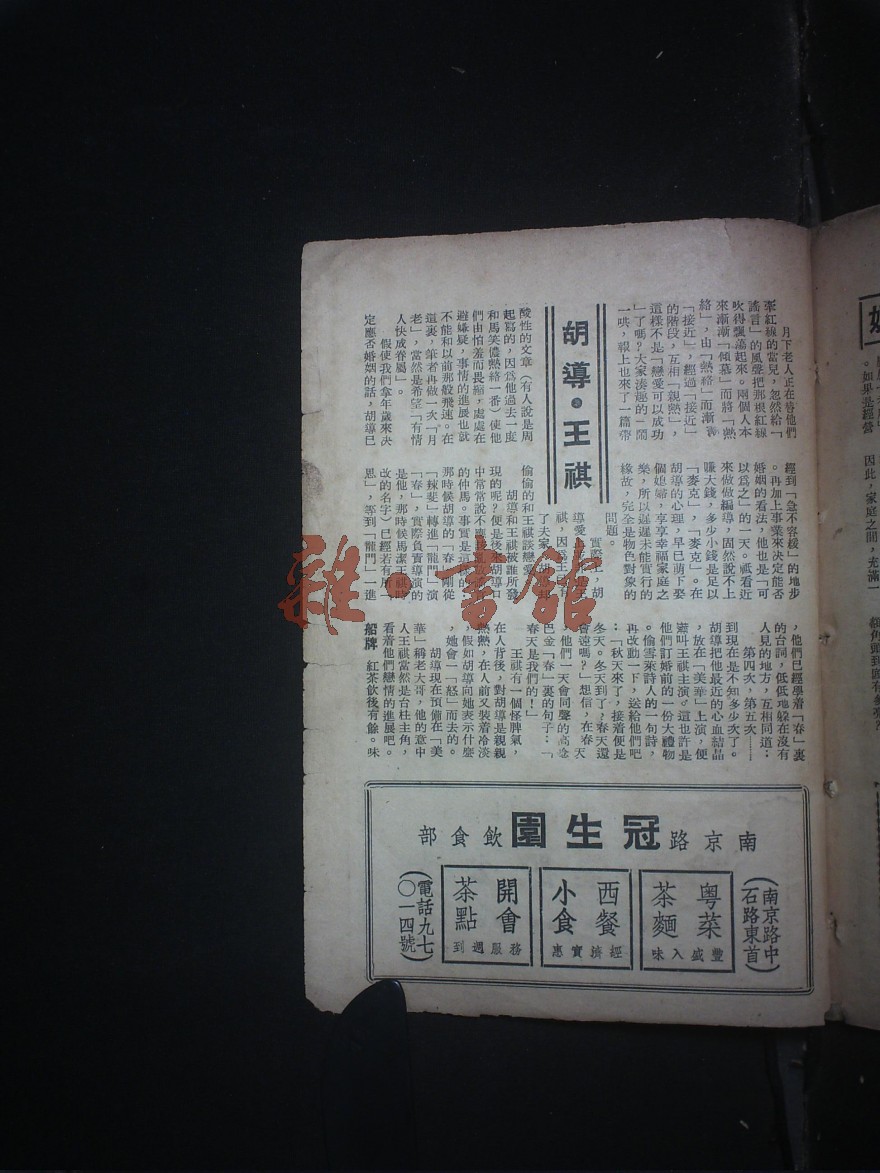 胡導·王祺
月下老人正在替他們
牽紅線的當兒，忽然給「
謠言」的風聲把那根紅線
吹得飄蕩起來。兩個人本
來漸漸「傾慕」而將「熱
絡」，由「熱絡」而漸
「接近」，經過「接近」
的階段，互相「親熱」，
這樣不是「戀愛可以成功
」了嗎？大家湊趣的一鬨
一哄，報上也來了一篇帶
酸性的文章（有人說是周
起寫的，因爲他過去一度
和馬笑儂熱絡一番）使他
們由怕羞而畏縮，處處在
避嫌疑，事情的進展也就
不能和以前那般飛速。在
這裏，筆者再做一次「月
老」，當然是希望「有情
人快成眷屬」。
假使我們拿年歲來决
定應否婚姻的話，胡導已
經到「急不容緩」的地步
。再加上事業來决定能否
婚姻的看法，他也是「可
以爲之」的一天。祇看近
來做做編導，固然說不上
賺大錢，多少小錢是足以
「麥克」，「麥克」。在
胡導的心理，早已萌下娶
個媳婦，享享幸福家庭之
樂，所以遲遲未能實行的
緣故，完全是物色對象的
問題。
實際上，胡
導愛上的是王
祺，因爲王祺有
了夫家，胡導祇
偷偷的和王祺談戀愛。
胡導和王祺被誰所發
現的呢？便是後來胡導口
中常常說不賣
的仲馬。事實是這樣的：
那時候胡導的「春」剛從
「辣斐」轉進「龍門」演
「春」，實際負責導演的
是他，那時候馬潔王祺時
改的名字）已經若有所
思」，等到「龍門」一進
，他們已經學着「春」裏
的台詞，低低地躲在沒有
人見的地方，互相同道：
第四次，第五次……
到現在是不知多少次了。
胡導把他最近的心血結晶
，放在「美華」上演，便
邀叫王祺主演。這也許是
他們訂婚前的一份大禮物
。偷雪萊詩人的一句詩，
再改動一下，送給他們吧
：「秋天來了，接着便是
冬天。冬天到了，春天還
會遠嗎？」想信，在春天
，他們一天會同聲的高唸
巴金「春」裏的句子：「
春天是我們的！」
王祺有一個怪脾氣，
在人背後，對胡導是親親
熱熱，在人前又裝着冷淡
，假如胡導向她表示什麼
，她會一「怒」而去的。
胡導現在預備在「美
華」稱老大哥，他的意中
人王祺當然是台柱主角，
看着他們戀情的進展吧。
船牌 紅茶飲後有餘。味
南京路冠生園飲食部
（南京路中
石路東首）
粤菜
茶麵
豐盛入味
西餐
小食
經濟實惠
開會
茶點
服務週到
（電話九七
〇一四號）
雜·書館
。如果是經營
因此，家庭之間，充滿一